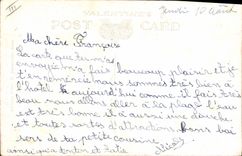 III
VALENTINE'S
POST CARD
Jeudi 10 Août
Ma chère Françoise
La carte que tu m'as
envoyée m'a fait beaucoup plaisir et je
t'en remercie nous sommes très bien à
l'hôtel aujourd'hui comme il fait très
beau nous allons aller à la plage l'eau
est très bonne il y a aussi une douche
et toutes sortes d'attractions bons bai
sers de ta petite cousine
ainsi qu'à tonton et tatie